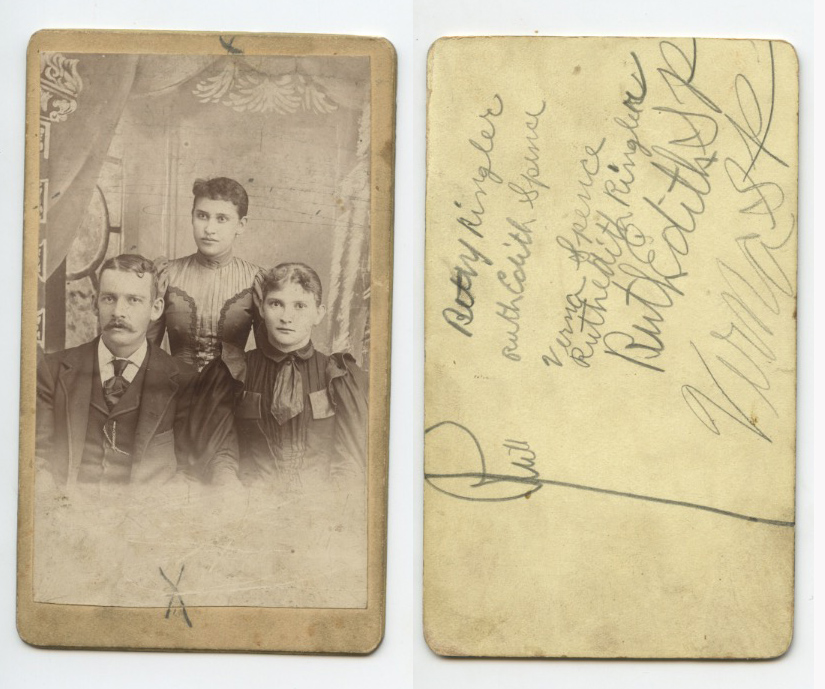 Betty Ringler
Ruth Edith Spence
Verna Spence
Ruthedith Ringler
Ruth Edith Sp
Verna Sp
Ruth